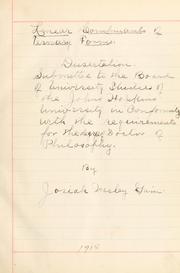 Linear Combinants of
Ternary Forms.
Dissertation
Submitted to the Board
of University Studies of
the Johns Hopkins
University in Conformity
with the requirements
for the Degree Doctor of
Philosophy.
By
Josiah Wesley
1918